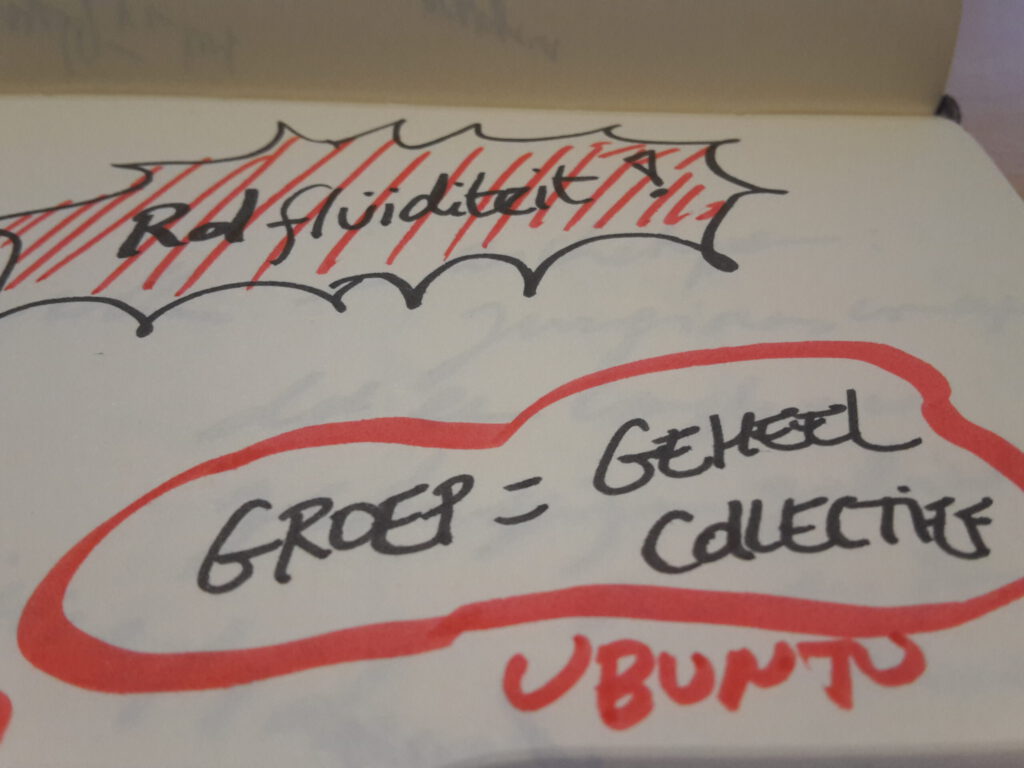 Rolfluiditeit!
GROEP = GEHEEL
COLLECTIEF
UBUNTU